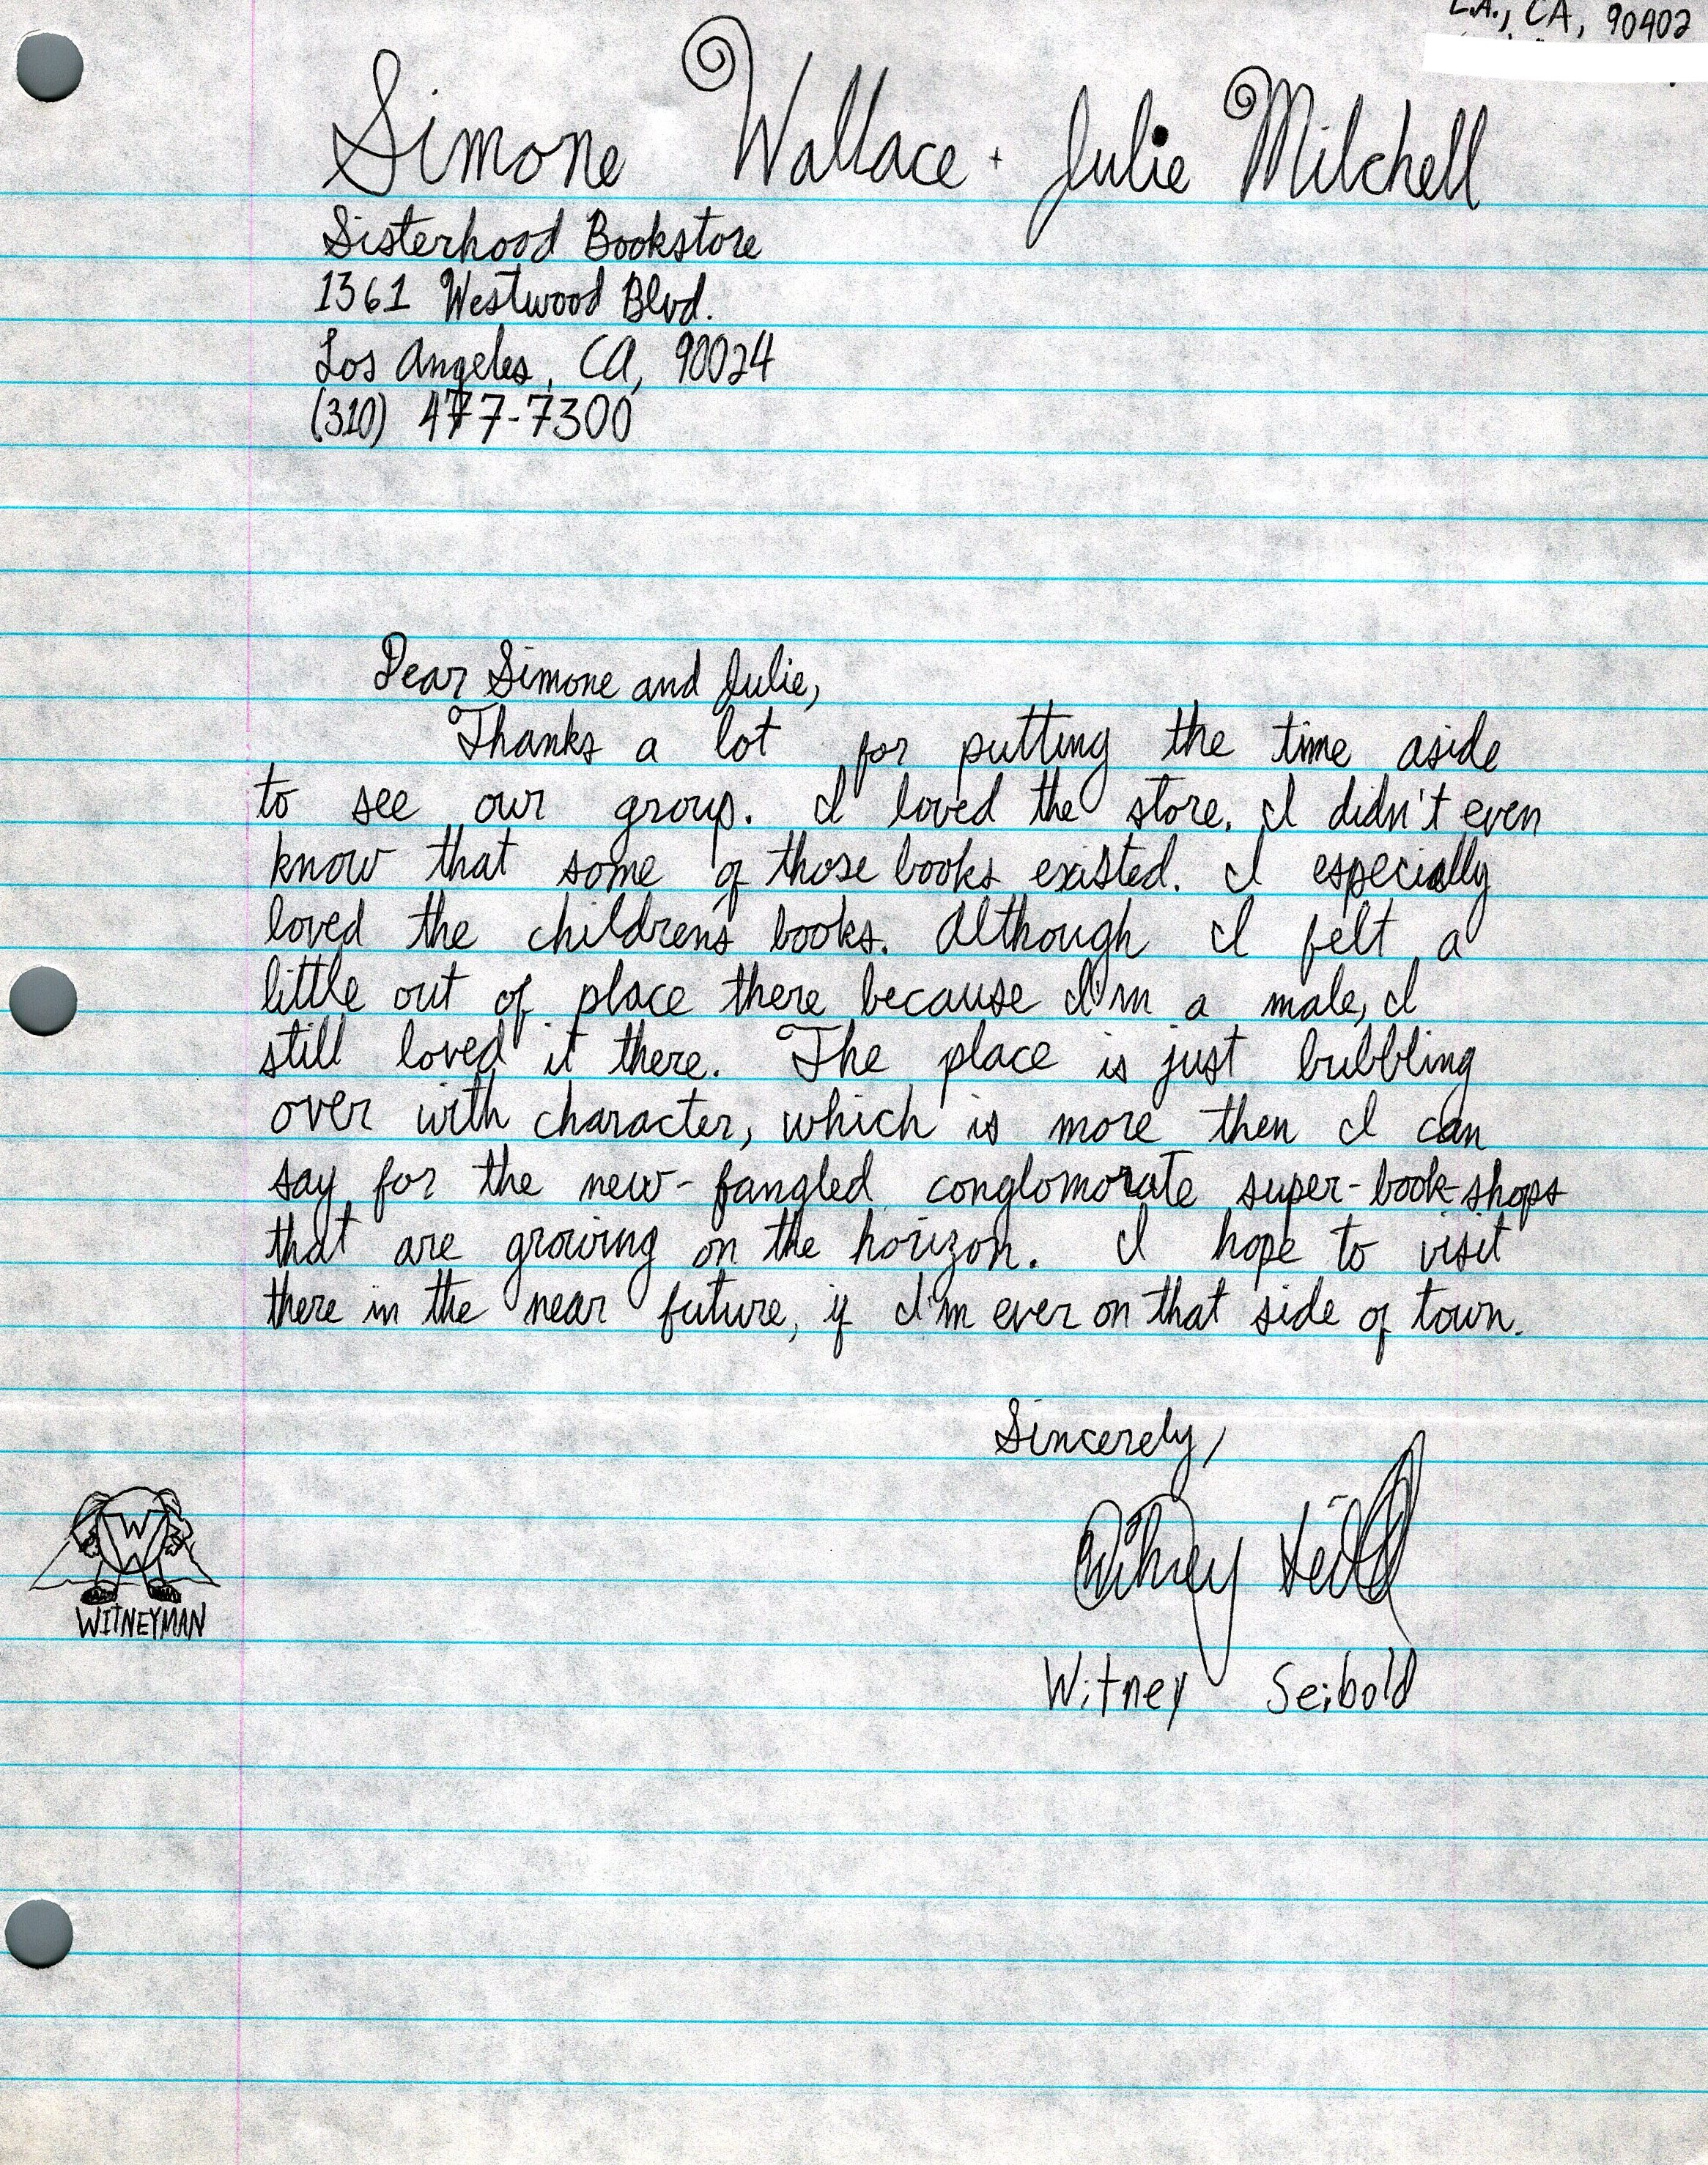 L.A., CA, 90402
Simone Wallace + Julie Milchell
Sisterhood Bookstore
1361 Westwood Blvd.
Los Angeles, CA, 90024
(310) 477-7300
Dear Simone and Julie,
Thanks a lot for putting the time aside
to see our group. I loved the store. I didn't even
know that some of those books existed. I especially
loved the childrens books. Although I felt a
little out of place there because I'm a male, I
still loved it there. The place is just bubbling
over with character, which is more then I can
say for the new-fangled conglomorate super-book-shops
that are growing on the horizon. I hope to visit
there in the near future, if I'm ever on that side of town.
Sincerely,
Witney Seibold
W
WITNEYMAN
Witney Seibold